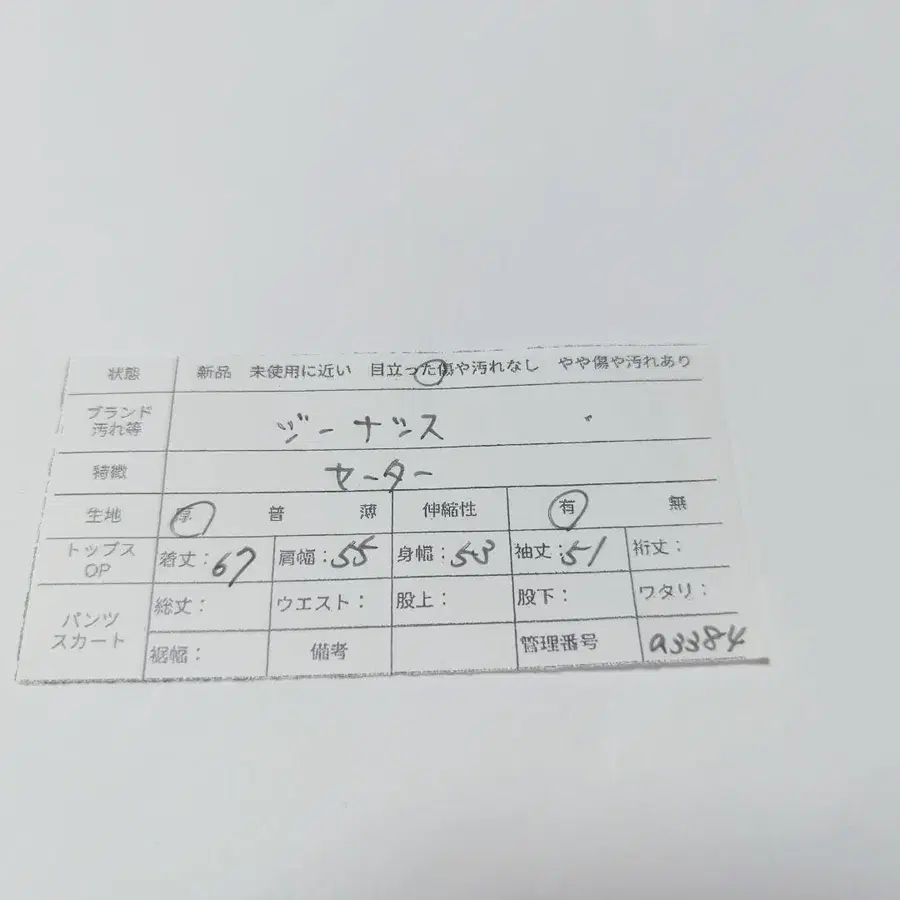 状態 新品 未使用に近い 目立った傷や汚れなし やや傷や汚れあり
ブランド
汚れ等
ジーナシス
特徴 セーター
生地 厚 普 薄 伸縮性 有 無
トップス
OP
着丈:67 肩幅:55 身幅:53 袖丈:51 裄丈:
パンツ
スカート
総丈: ウエスト: 股上: 股下: ワタリ:
裾幅: 備考 管理番号 a3384